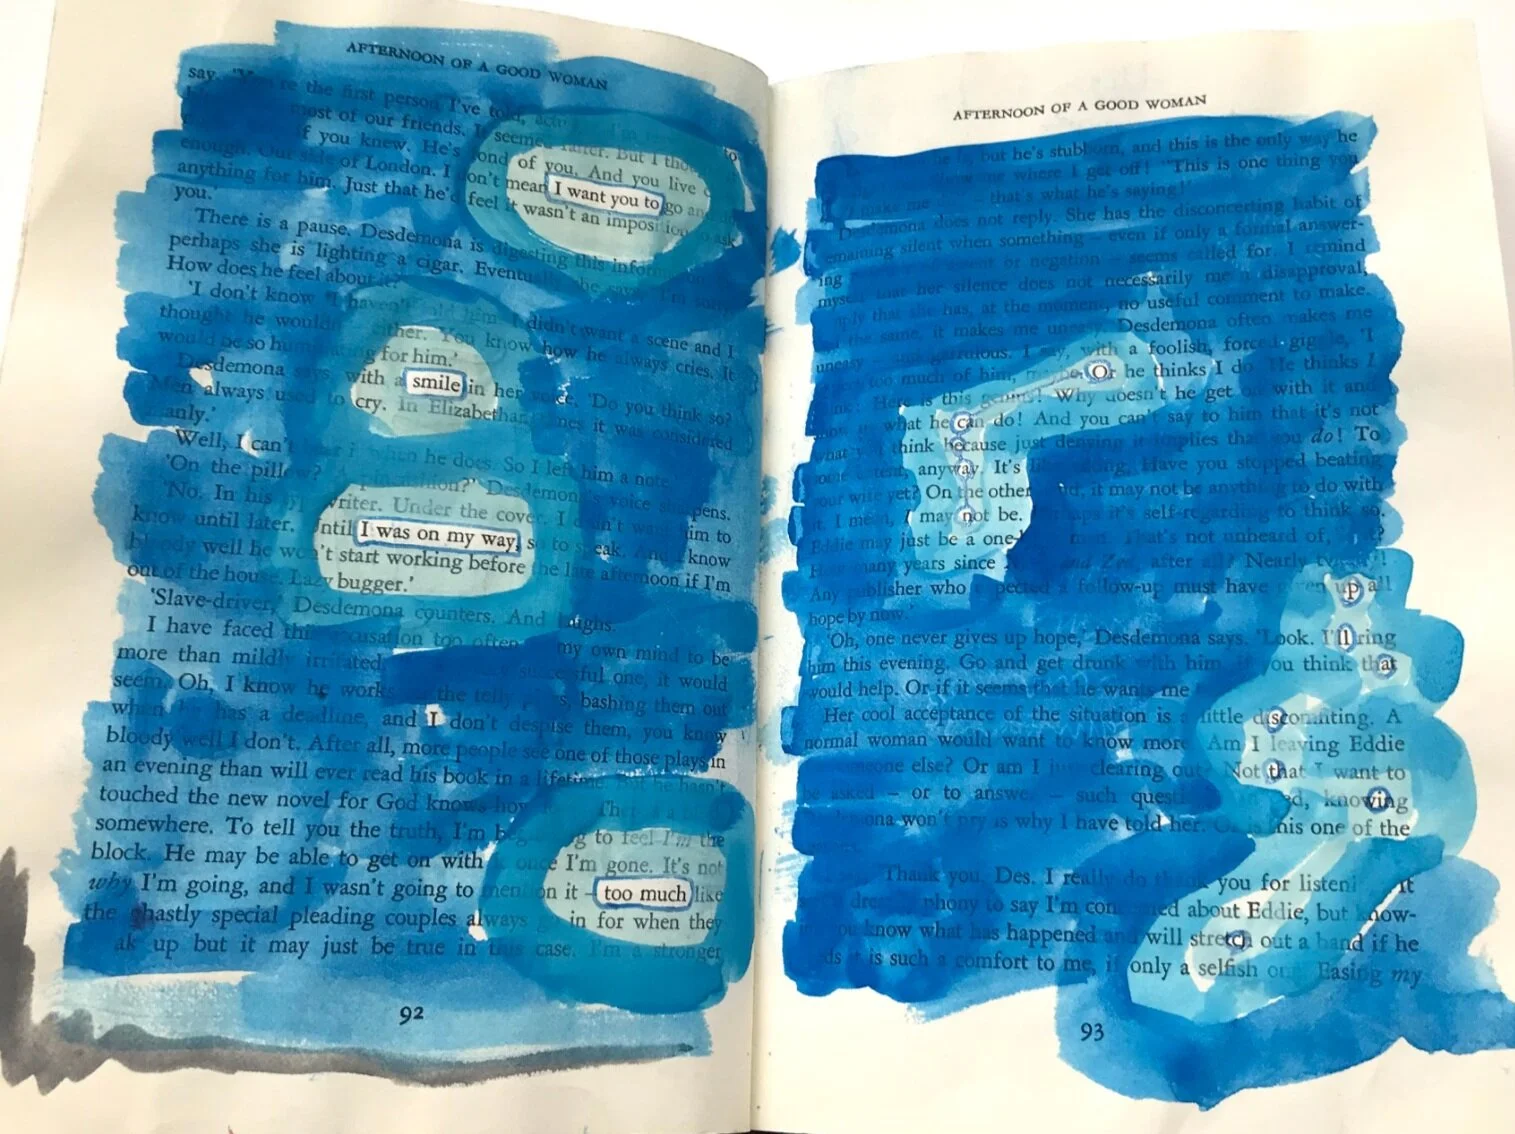 AFTERNOON OF A GOOD WOMAN
say. the first person I've told,
most of our friends. It seemed But I
if you knew. He's fond of you. And you live
enough. Our side of London. I don't mean I want you to go
anything for him. Just that he'd feel it wasn't an imposition ask
you.'
There is a pause. Desdemona is digesting this
perhaps she is lighting a cigar. he says,
How does he feel about it?
'I don't know I haven't told him. I didn't want a scene and I
thought he You know how he always cries. It
would be so humiliating for him.'
Desdemona says with a smile in her voice. 'Do you think so?
Men always used to cry. In Elizabethan times it was considered
manly.'
'Well, I can't when he does. So I left him a note.'
'On the pillow? Desdemona's voice sharpens.
'No. In his Under the cover. I didn't want him to
know until later. Until I was on my way, so to speak. And I know
bloody well he won't start working before the late afternoon if I'm
out of the house. Lazy bugger.'
'Slave-driver,' Desdemona counters. And laughs.
I have faced this accusation too often my own mind to be
more than mildly irritated. one, it would
seem. Oh, I know he works the telly bashing them out
when he has a deadline, and I don't despise them, you know
bloody well I don't. After all, more people see one of those plays in
an evening than will ever read his book in a lifetime. But he hasn't
touched the new novel for God knows
somewhere. To tell you the truth, I'm to feel I'm the
block. He may be able to get on with once I'm gone. It's not
why I'm going, and I wasn't going to mention it – too much like
the ghastly special pleading couples always in for when they
up but it may just be true in this case. I'm a stronger
92
AFTERNOON OF A GOOD WOMAN
but he's stubborn, and this is the only way he
me where I get off! 'This is one thing you
make me that's what he's saying!'
Desdemona does not reply. She has the disconcerting habit of
remaining silent when something – even if only a formal answer-
ing or negation – seems called for. I remind
myself that her silence does not necessarily mean disapproval,
that she has, at the moment, no useful comment to make.
the same, it makes me uneasy. Desdemona often makes me
uneasy garrulous. I say, with a foolish, forced giggle, 'I
too much of him, Or he thinks I do. He thinks I
think: Here is this genius! Why doesn't he get on with it and
what he can do! And you can't say to him that it's not
what you think because just denying it implies that you do! To
some extent, anyway. It's Have you stopped beating
your wife yet? On the other it may not be anything to do with
it. I mean, I may not be. it's self-regarding to think so.
Eddie may just be a one- man. That's not unheard of,
How many years since after all? Nearly twenty!
Any publisher who expected a follow-up must have given up all
hope by now.'
'Oh, one never gives up hope,' Desdemona says. 'Look. I'll ring
him this evening. Go and get drunk with him, if you think that
would help. Or if it seems that he wants me
Her cool acceptance of the situation is a little discomfiting. A
normal woman would want to know more. Am I leaving Eddie
someone else? Or am I just clearing out? Not that I want to
be asked – or to answer – such knowing
won't pry is why I have told her. this one of the
Thank you, Des. I really do thank you for It
phony to say I'm concerned about Eddie, but know-
you know what has happened and will stretch out a hand if he
is such a comfort to me, if only a selfish one. Easing my
93